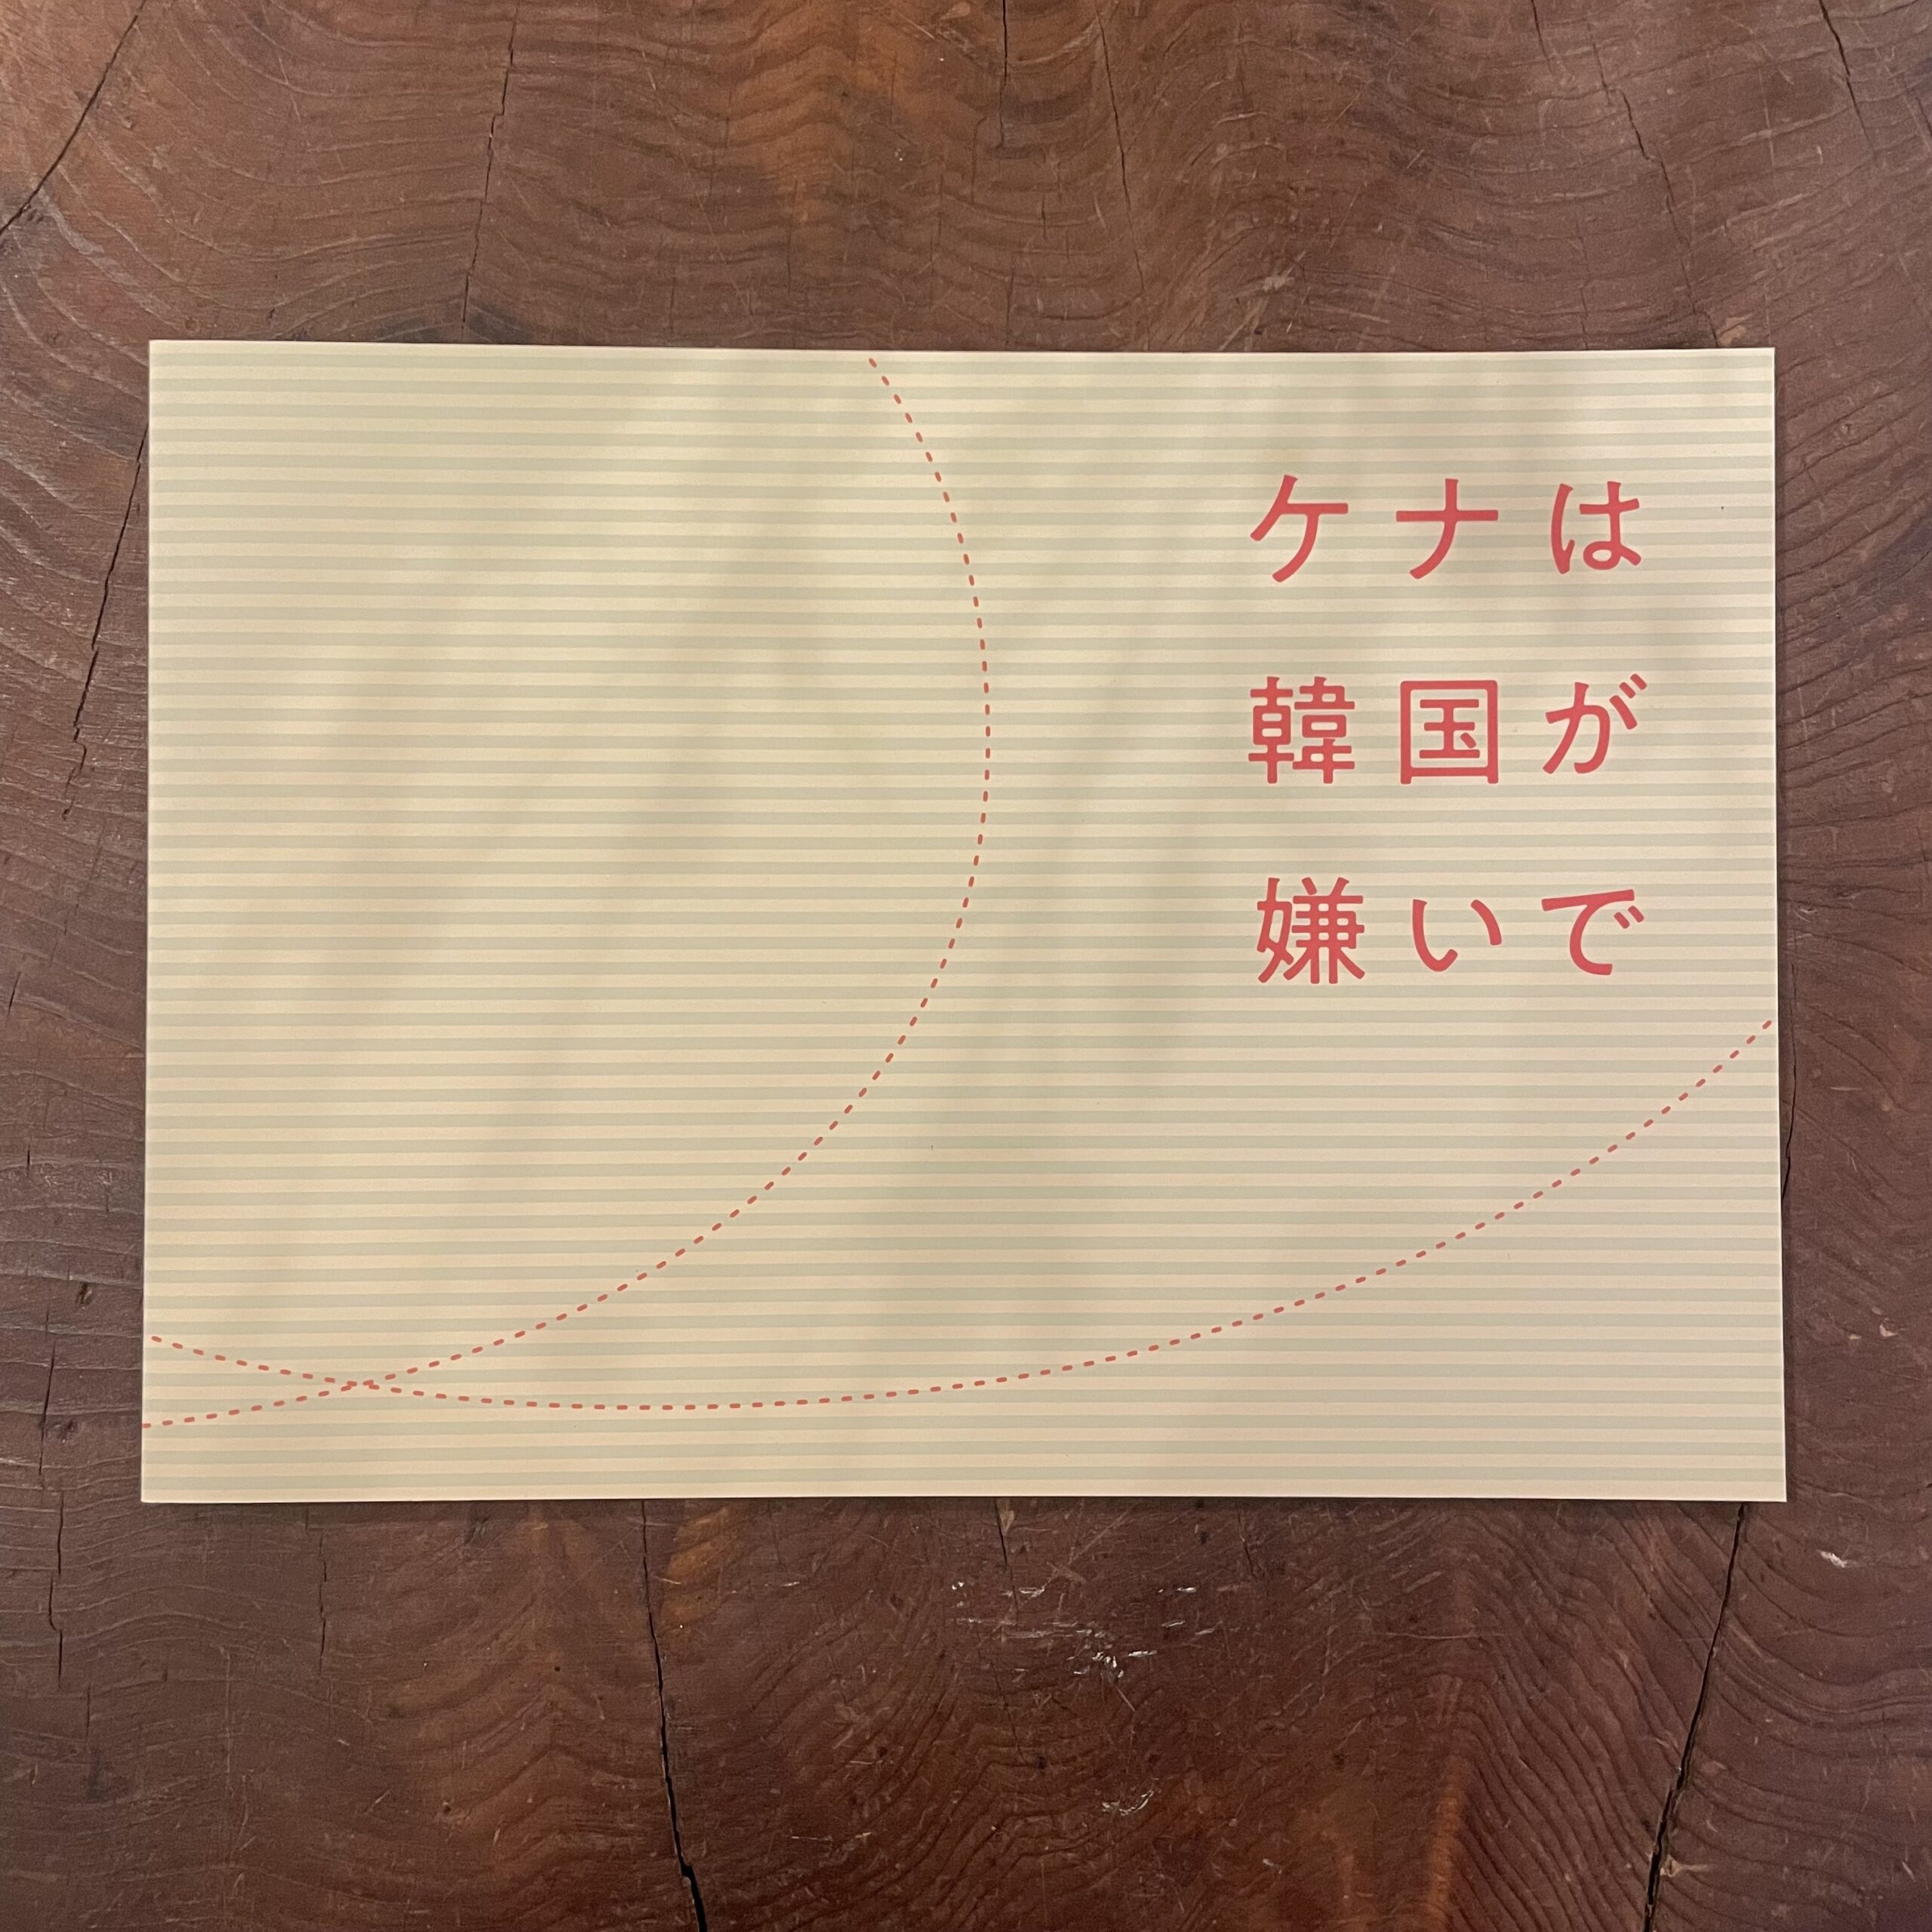 ケナは
韓国が
嫌いで